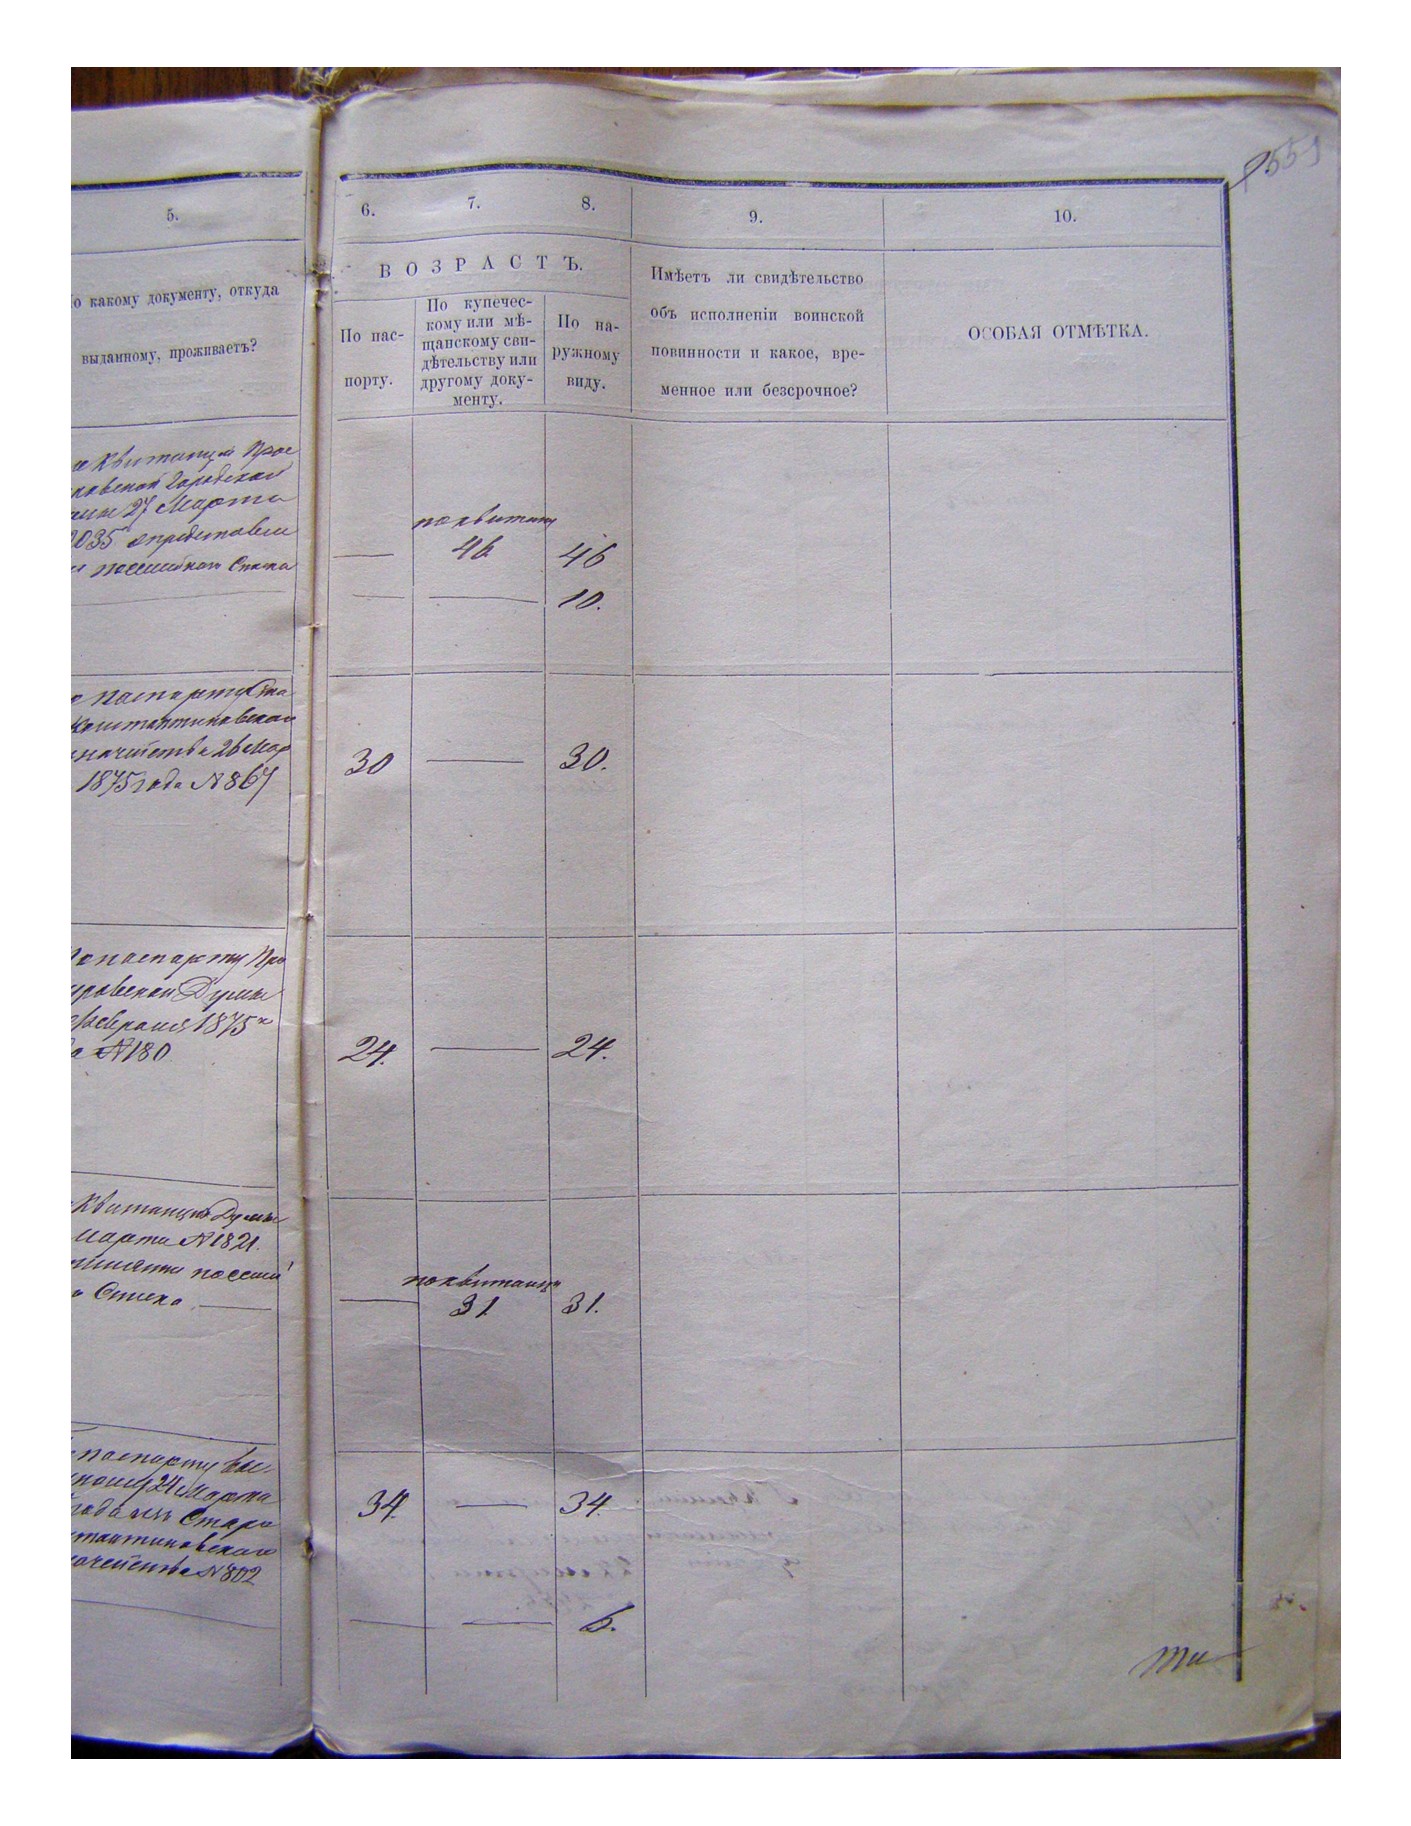 559
5.
6.
7.
8.
9.
10.
о какому документу, откуда
выданному, проживаетъ?
ВОЗРАСТЪ.
По пас-
порту.
По купечес-
кому или мѣ-
щанскому сви-
дѣтельству или
другому доку-
менту.
По на-
ружному
виду.
Имѣетъ ли свидѣтельство
объ исполненіи воинской
повинности и какое, вре-
менное или безсрочное?
ОСОБАЯ ОТМѢТКА.
Квитанціи Прос
Городской
27 Марта
2035
посемейнаго Списка
по квитанц
— 46 46
— — 10.
паспорту Ста
константиновскаго
начейства 26 Мар
1875 года №867
30 — 30.
паспорту Про
уровской Думы
Февраля 1875
№180
24. — 24.
Квитанціи Думы
Марта №1821.
посемей
Списка —
по квитанци
— 31 31.
паспорту вы
ному 24 Марта
года изъ Старо
стантиновскаго
начейства №802
34. — 34.
— — 6.